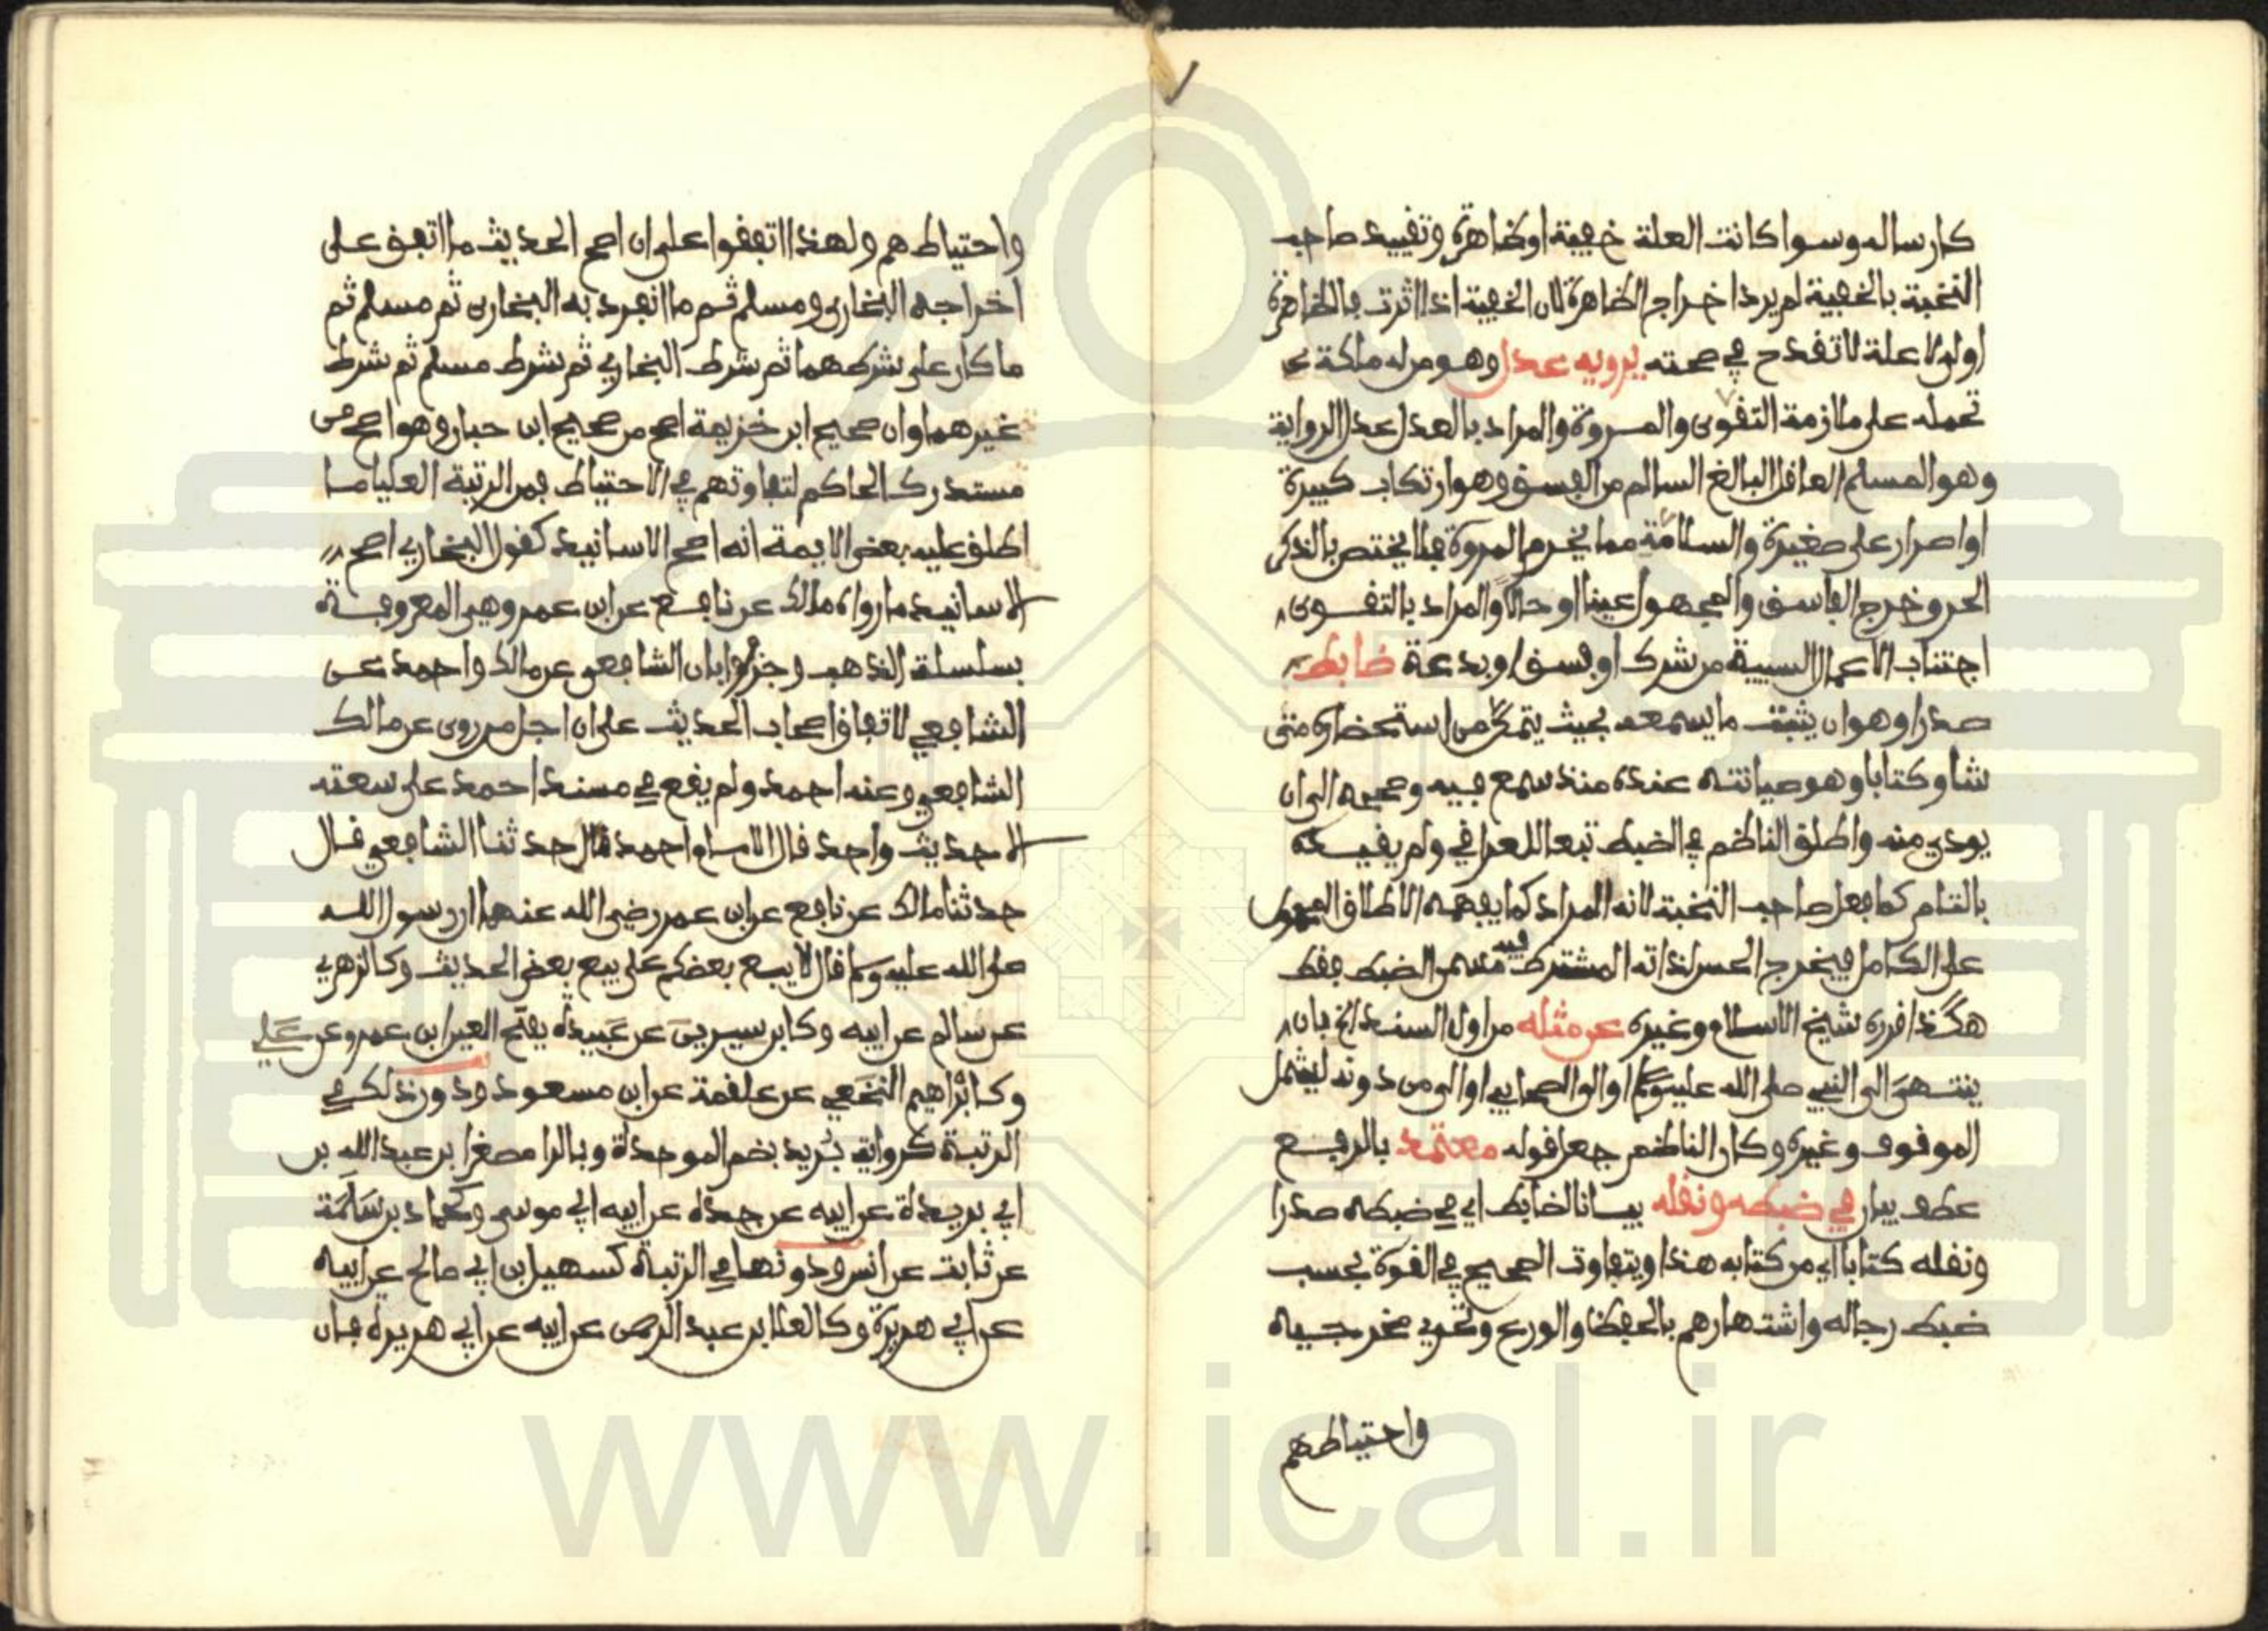 كارساله وسوا كانت العلة خفية او ظاهرة وتقييد صاحب
النخبة بالخفية لم يرد اخراج الظاهرة لان الخفية اذا اثرت فالظاهرة
اولى لا علة لا تقدح في صحته يرويه عدل وهو من له ملكة
تحمله على ملازمة التقوى والمروة والمراد بالعدل عدل الرواية
وهو المسلم العاقل البالغ السالم من الفسق وهو ارتكاب كبيرة
او اصرار على صغيرة والسلامة مما يخرم المروة فلا يختص بالذكر
الحر وخرج الفاسق والمجهول عينا او حالا والمراد بالتقوى
اجتناب الاعمال السيية من شرك او فسق او بدعة ضابط
صدرا وهو ان يثبت ما يسمعه بحيث يتمكن من استحضاره متى
شا وكتابا وهو صيانته عنده منذ سمع فيه وصححه الى ان
يودي منه واطلق الناظم في الضبط تبعا للعراقي ولم يقيده
بالتام كما فعل صاحب النخبة لانه المراد كما يفهمه الاطلاق المحمول
على الكامل فيخرج الحسن لذاته المشترط فيه مسمى الضبط فقط
هكذا قرره شيخ الاسلام وغيره عن مثله من اول السند الخ بان
ينتهى الى النبي صلى الله عليه وسلم او الى الصحابي او الى من دونه ليشمل
الموقوف وغيره وكان الناظم جعل قوله معتمد بالرفع
عطف بيان في ضبطه ونقله بيانا لضابط اي في ضبطه صدرا
ونقله كتابا اي من كتابه هذا ويتفاوت الصحيح في القوة بحسب
ضبط رجاله واشتهارهم بالحفظ والورع وتحري مخرجيه
واحتياطهم
واحتياطهم ولهذا اتفقوا على ان اصح الحديث ما اتفق على
اخراجه البخاري ومسلم ثم ما انفرد به البخاري ثم مسلم ثم
ما كان على شرطهما ثم شرط البخاري ثم شرط مسلم ثم شرط
غيرهما وان صحيح ابن خزيمة اصح من صحيح ابن حبان وهو اصح من
مستدرك الحاكم لتفاوتهم في الاحتياط فمن الرتبة العليا ما
اطلق عليه بعض الايمة انه اصح الاسانيد كقول البخاري اصح
الاسانيد ما رواه مالك عن نافع عن ابن عمر وهي المعروفة
بسلسلة الذهب وجزموا بان الشافعي عن مالك واحمد عن
الشافعي لاتفاق اصحاب الحديث على ان اجل من روى عن مالك
الشافعي وعنه احمد ولم يقع في مسند احمد على سعته
الا حديث واحد قال الامام احمد قال حدثنا الشافعي قال
حدثنا مالك عن نافع عن ابن عمر رضي الله عنهما ان رسول الله
صلى الله عليه وسلم قال لا يبع بعضكم على بيع بعض الحديث وكالزهري
عن سالم عن ابيه وكابن سيرين عن عبيدة بفتح العين ابن عمرو عن علي
وكابراهيم النخعي عن علقمة عن ابن مسعود ودون ذلك في
الرتبة كرواية بريد بضم الموحدة وبالرا مصغرا بن عبد الله بن
ابي بريدة عن ابيه عن جده عن ابيه ابي موسى وكحماد بن سلمة
عن ثابت عن انس ودونها في الرتبة كسهيل بن ابي صالح عن ابيه
عن ابي هريرة وكالعلا بن عبد الرحمن عن ابيه عن ابي هريرة فان
www.ical.ir